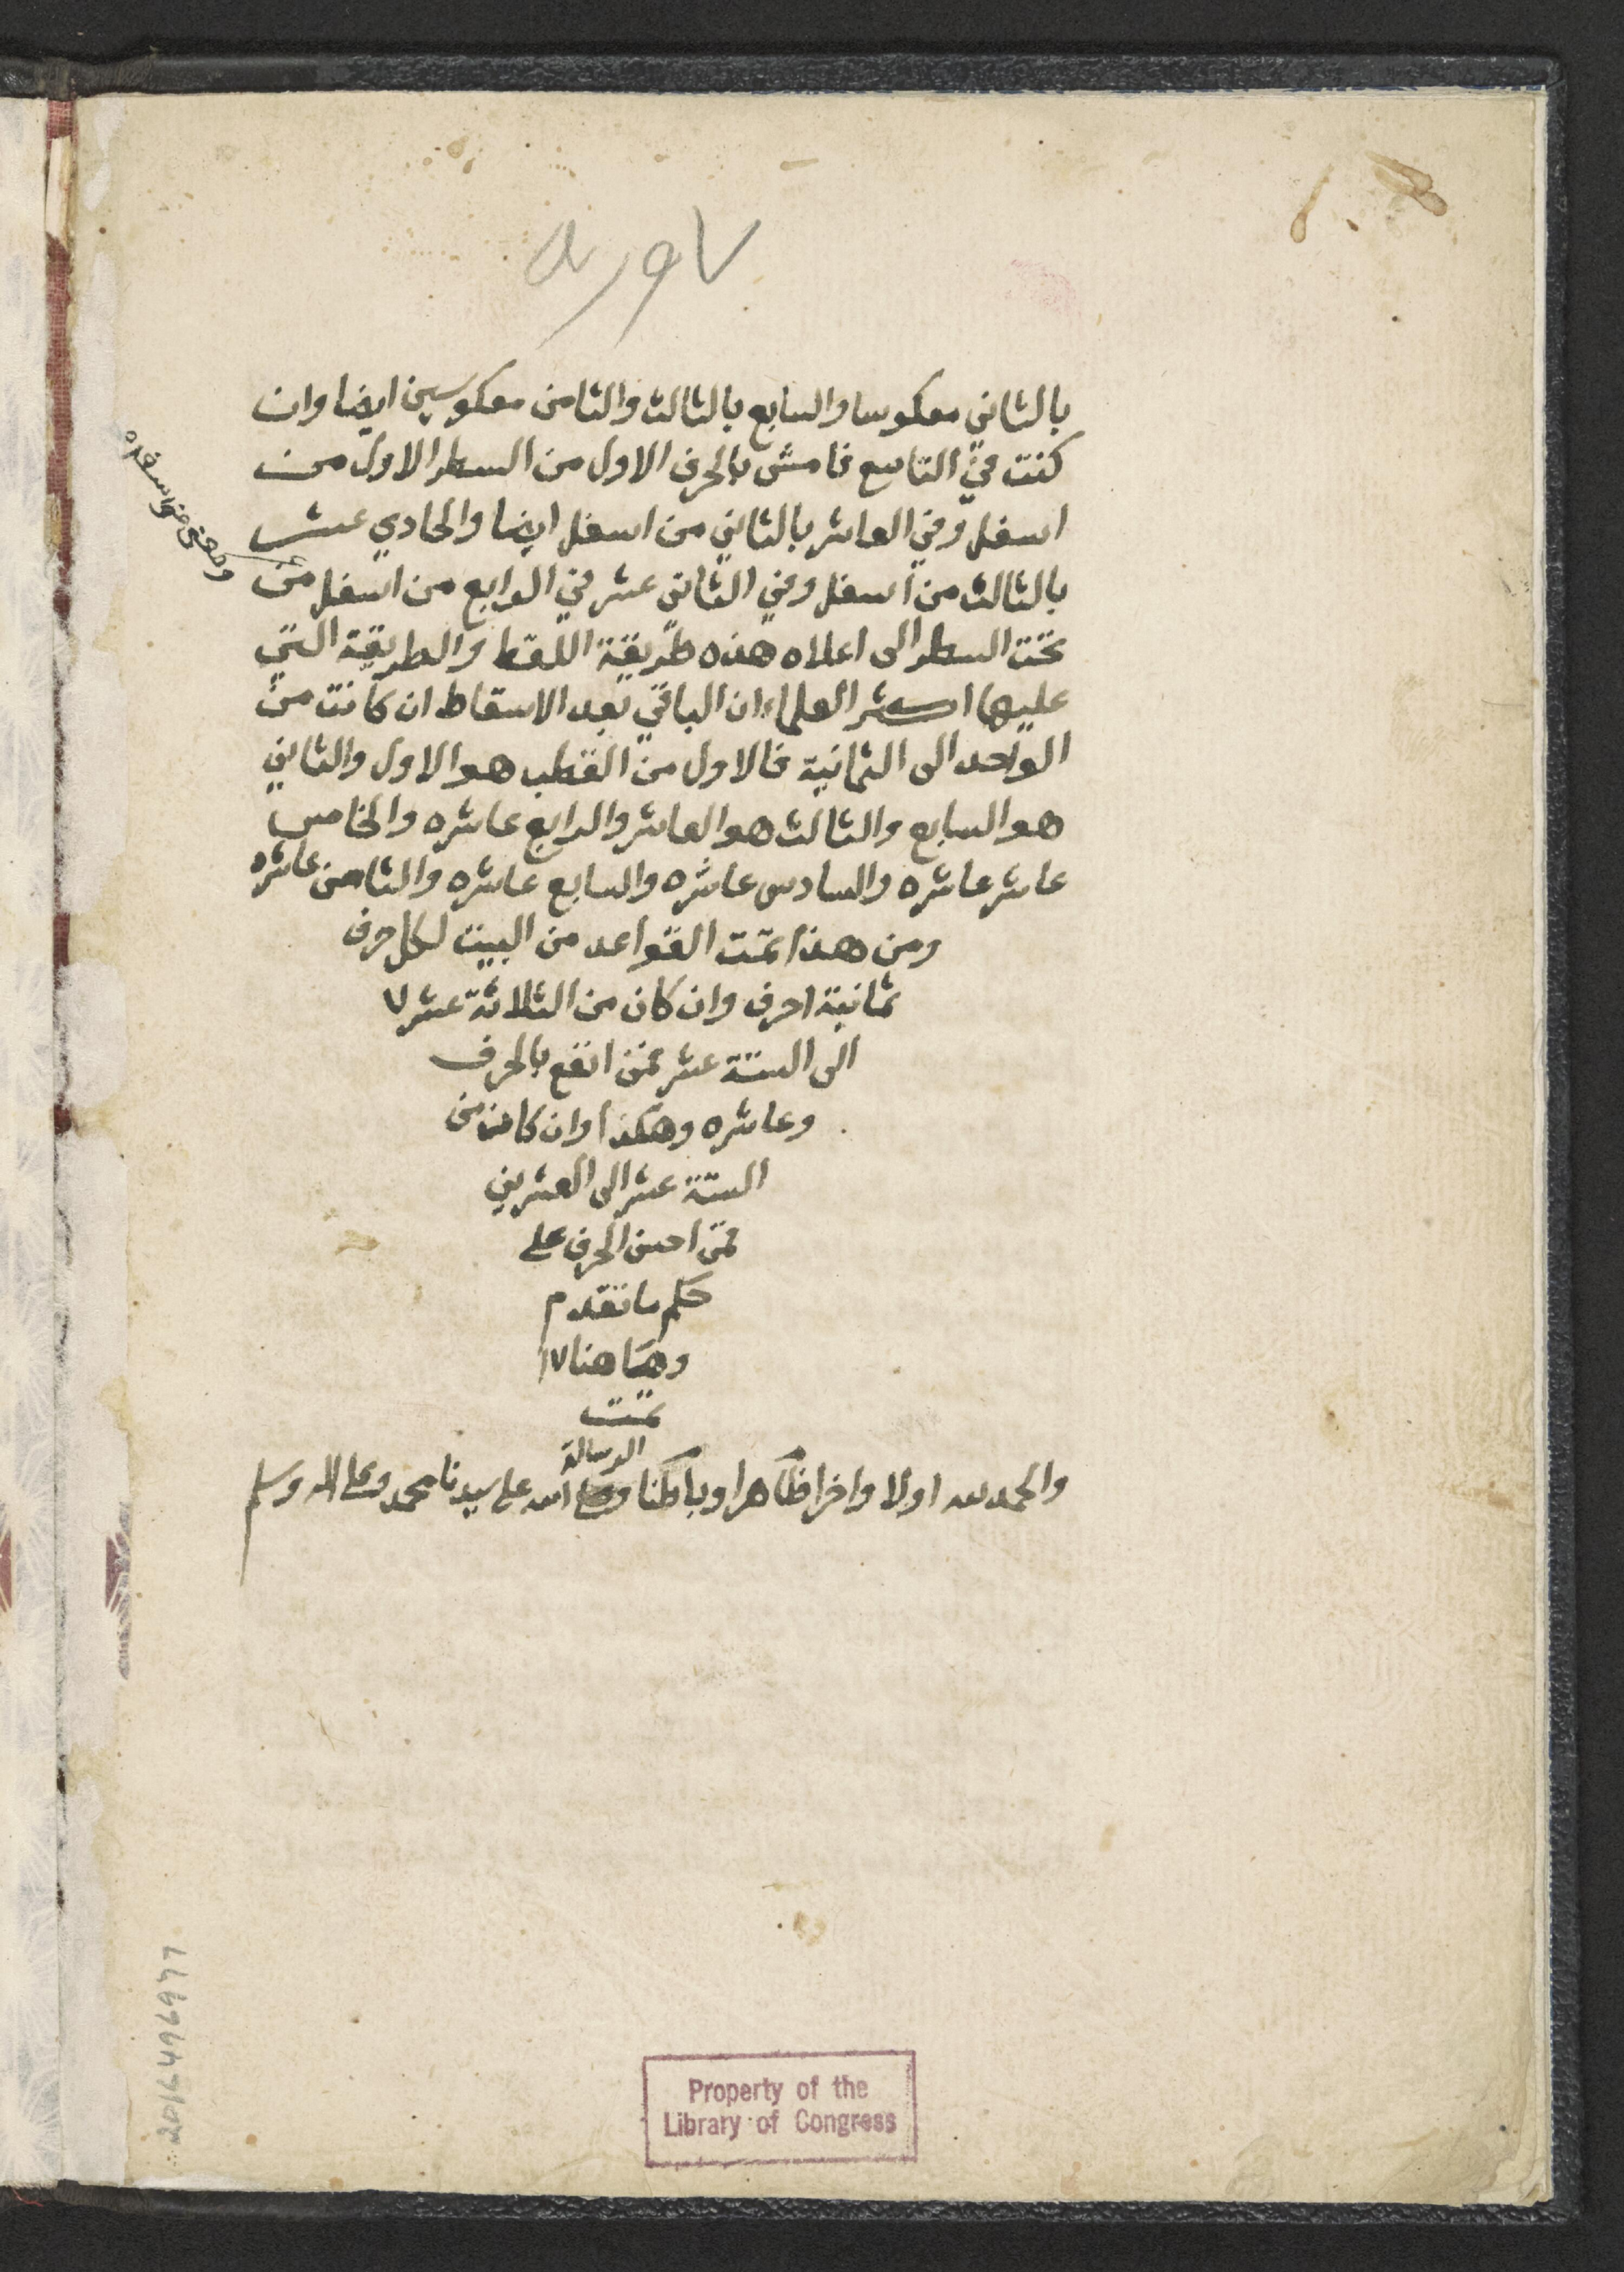 ٧ ورقه
بالثاني معكوسا والسابع بالثالث والثامن معكوسين ايضا وان
كنت في التاسع فامش بالحرف الاول من السطر الاول من
اسفل وفي العاشر بالثاني من اسفل ايضا والحادي عشر
بالثالث من اسفل وفي الثاني عشر في الرابع من اسفل من
تحت السطر الى اعلاه هذه طريقة اللقط والطريقة التي
عليها اكثر العلماء ان الباقي بعد الاسقاط ان كانت من
الواحد الى الثمانية فالاول من القطب هو الاول والثاني
هو السابع والثالث هو العاشر والرابع عاشره والخامس
عاشر عاشره والسادس عاشره والسابع عاشره والثامن عاشره
ومن هذا تمت القواعد من البيت لكل حرف
ثمانية احرف وان كان من الثلاثة عشر ٧
الى الستة عشر فمن اتقع بالحرف
وعاشره وهكذا وان كان من
الستة عشر الى العشرين
فمن احسن الحرف على
حكم ما تقدم
وها هنا ١٧
تمت
الرسالة
والحمد لله اولا واخرا ظاهرا وباطنا وصلى الله على سيدنا محمد وعلى اله وسلم
2016496977
Property of the
Library of Congress